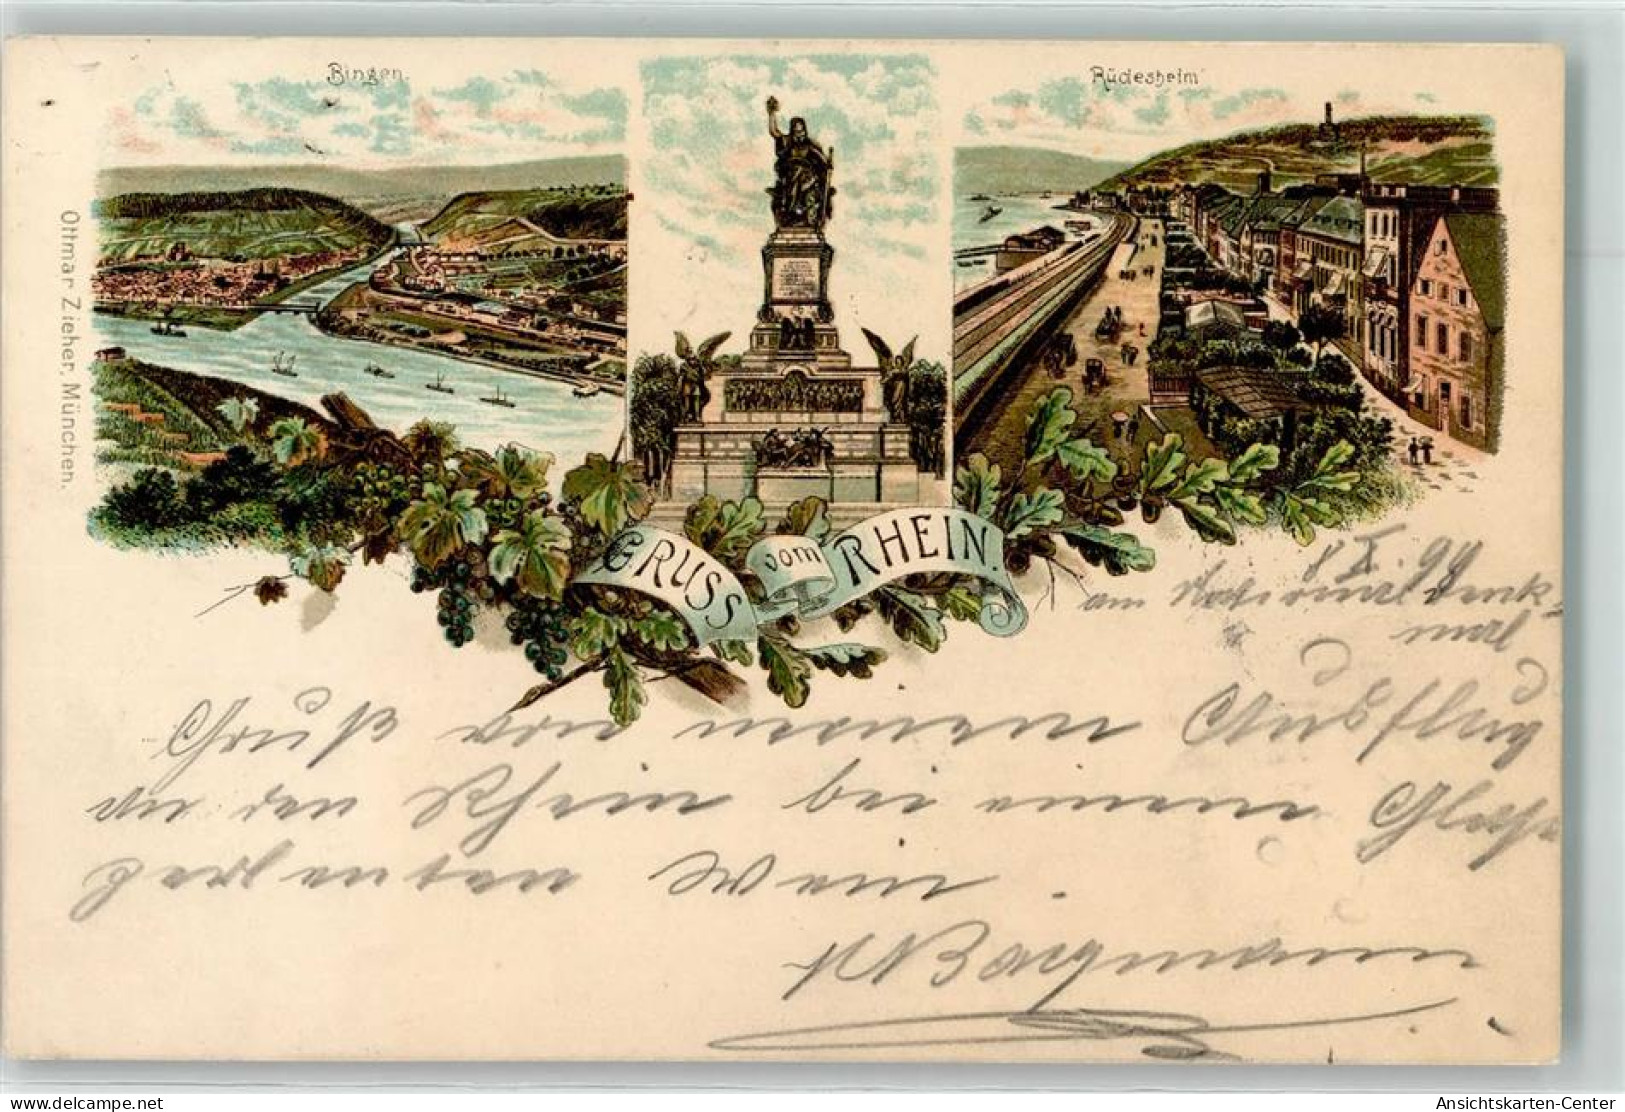 Bingen.
Rüdesheim
Ottmar Zieher, München.
GRUSS vom RHEIN.
am Nationaldenk-
mal
Gruß von meinem Ausflug
an den Rhein bei einem Glas
Wein.
Ansichtskarten-Center